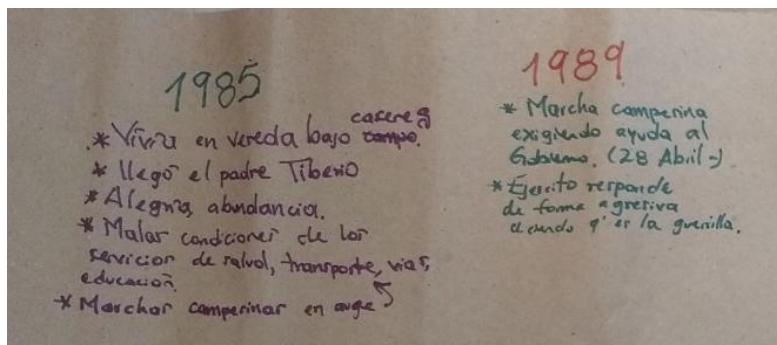 1985
* Vivía en vereda bajo caseres
campo.
* llegó el padre Tiberio
* Alegria, abundancia.
* Malas condiciones de los
servicios de salud, transporte, vias,
educación.
* Marchas campesinas en auge
1989
* Marcha campesina
exigiendo ayuda al
Gobierno. (28 Abril -)
* Ejercito responde
de forma agresiva
diciendo q' es la guerrilla.